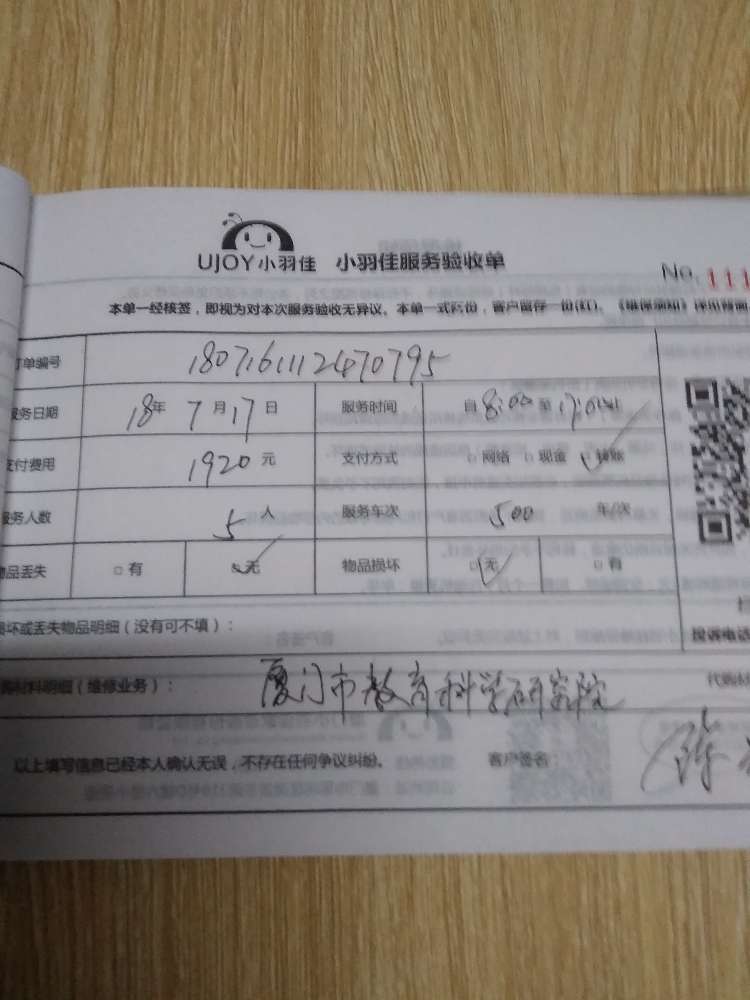 UJOY小羽佳 小羽佳服务验收单
No. 111
本单一经核签，即视为对本次服务验收无异议。本单一式两份，客户留存一份(红)。《维保须知》详见背面
订单编号 1807161112470795
服务日期 18年 7月17日 服务时间 自8:00至17:00
支付费用 1920元 支付方式 □网络 □现金 ☑转账
服务人数 5人 服务车次 500 车/次
物品丢失 □有 ☑无 物品损坏 ☑无 □有
损坏或丢失物品明细（没有可不填）：
投诉电话
材料明细（维修业务）： 厦门市教育科学研究院
以上填写信息已经本人确认无误，不存在任何争议纠纷。 客户签名： 陈